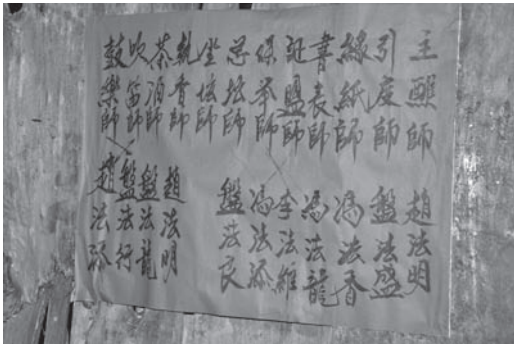 主醮師 趙法明
引度師 盤法盛
緣紙師 馮法香
書表師 馮法龍
記盟師 李法維
保举師 馮法添
总坛師 盤法良
坐坛師
執香師 趙法明
茶酒師 盤法龍
吹笛師 盤法行
鼓樂師 趙法添